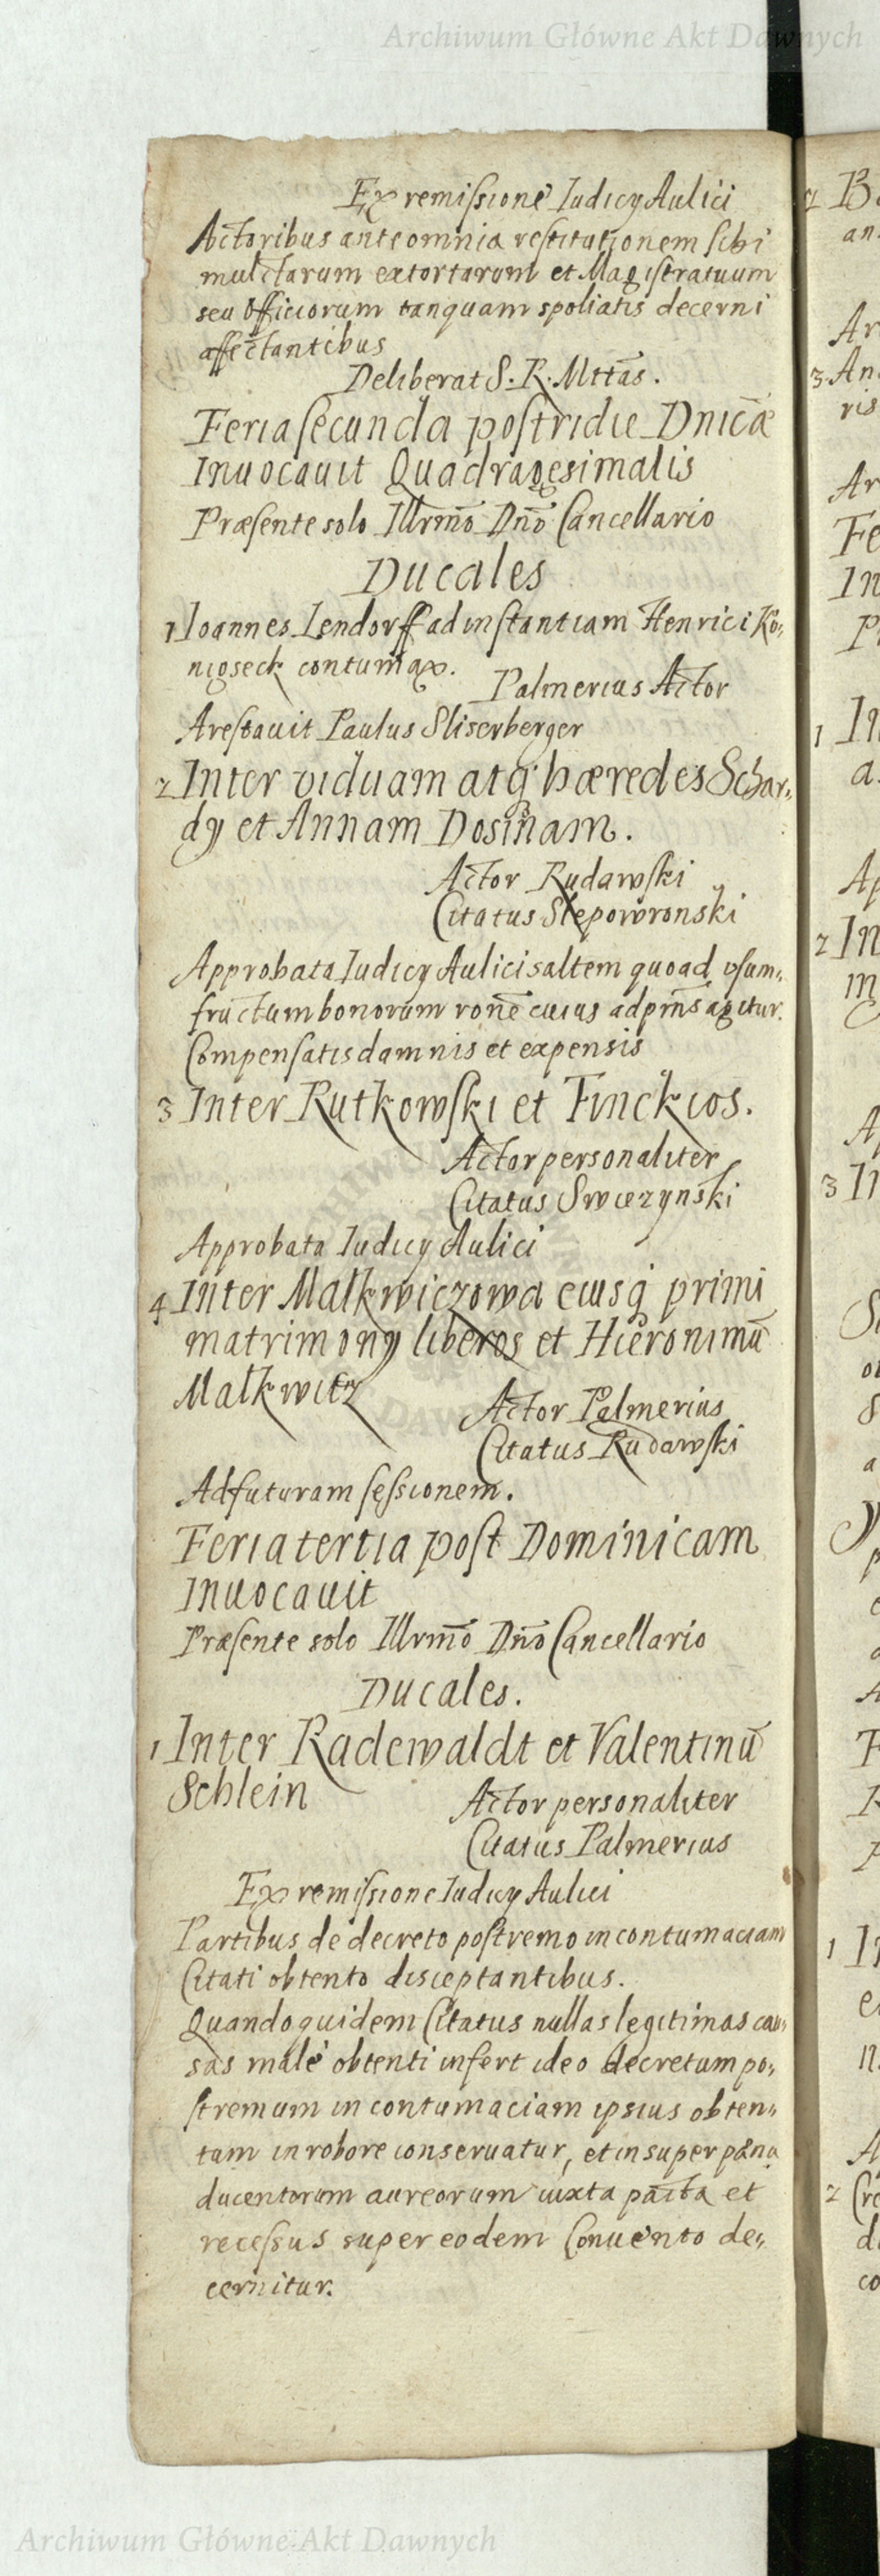 Archiwum Główne Akt Dawnych
Ex remissione Iudicy Aulici
Actoribus ante omnia restitutionem sibi
mulctarum extortarum et Magistratuum
seu officiorum tanquam spoliatis decerni
affectantibus
Deliberat S. R. Mttas.
Feria secunda postridie Dnicæ
Inuocauit Quadragesimalis
Præsente solo Illrmo Dno Cancellario
Ducales
1 Ioannes Lendorff ad instantiam Henrici Kö,,
nigseck contumax.
Palmerius Actor
Arestauit Paulus Sliserberger
2 Inter viduam atq hæredes Schar,,
dy et Annam Dosinam.
Actor Rudawski
Citatus Slepowronski
Approbata Iudicy Aulici saltem quoad vsum,,
fructum bonorum rone cuius ad pms agitur.
Compensatis damnis et expensis
3 Inter Rutkowski et Finckios.
Actor personaliter
Citatus Swiezynski
Approbata Iudicy Aulici
4 Inter Malkwiczowa eiusq primi
matrimony liberos et Hieronimū
Malkwitz
Actor Palmerius
Citatus Rudawski
Ad futuram sessionem.
Feria tertia post Dominicam
Inuocauit
Præsente solo Illrmo Dno Cancellario
Ducales.
1 Inter Radewaldt et Valentinū
Schlein
Actor personaliter
Citatus Palmerius
Ex remissione Iudicy Aulici
Partibus de decreto postremo in contumaciam
Citati obtento disceptantibus.
Quandoquidem Citatus nullas legitimas cau,,
sas malè obtenti infert ideo decretum po,,
stremum in contumaciam ipsius obten,,
tam in robore conseruatur, et insuper pæna
ducentorum aureorum iuxta pacta et
recessus super eodem Conuento de,,
cernitur.
Archiwum Główne Akt Dawnych